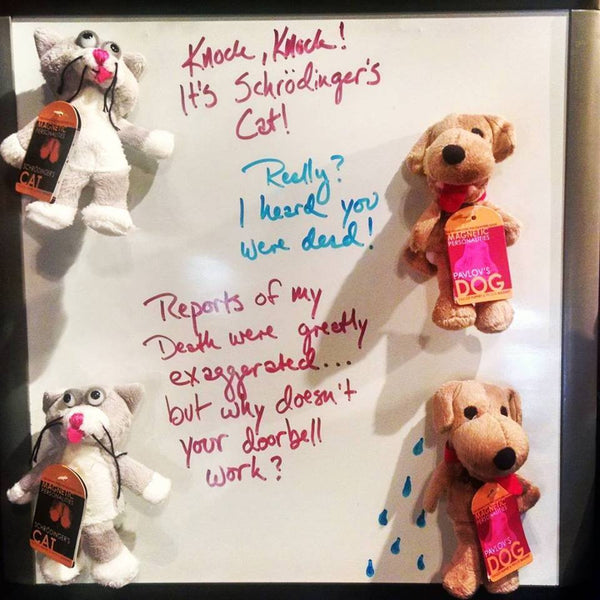 Knock, Knock!
It's Schrödinger's
Cat!
MAGNETIC
PERSONALITIES
SCHRÖDINGER'S
CAT
Really?
I heard you
were dead!
MAGNETIC
PERSONALITIES
PAVLOV'S
DOG
Reports of my
Death were greatly
exaggerated....
but why doesn't
your doorbell
work?
MAGNETIC
PERSONALITIES
SCHRÖDINGER'S
CAT
MAGNETIC
PERSONALITIES
PAVLOV'S
DOG